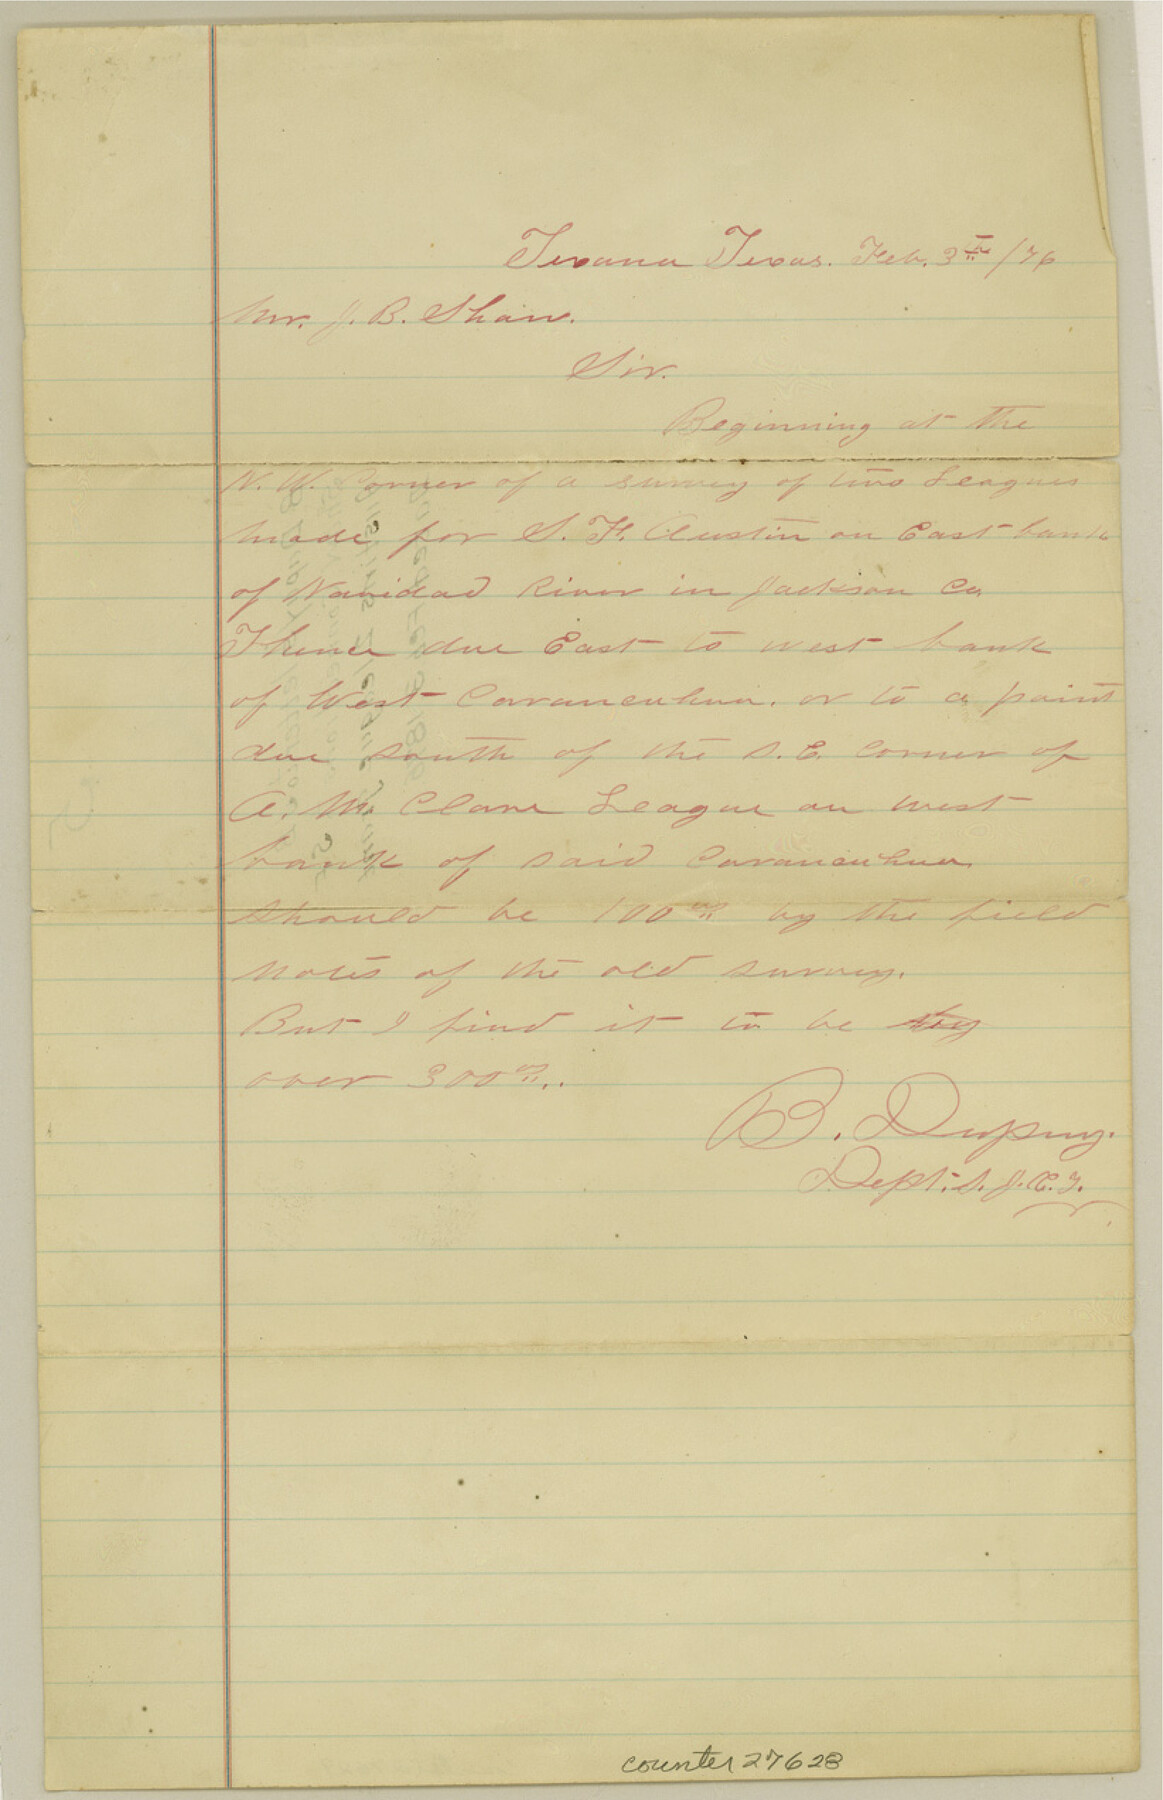 Texana Texas. Feb. 3th /76
Mr. J. B. Shaw.
Sir.
Beginning at the
N. W. Corner of a survey of two Leagues
made for S. F. Austin on East bank
of Navidad River in Jackson Co,
Thence due East to west bank
of West Carancuhua. or to a point
due south of the S. E. Corner of
A. Mc Clare League on west
bank of said Carancuhua
should be 100 vs by the field
notes of the old survey.
But I find it to be
over 300 vs..
B. Dupuy.
Dept. S. J. C. T.
counter 27628